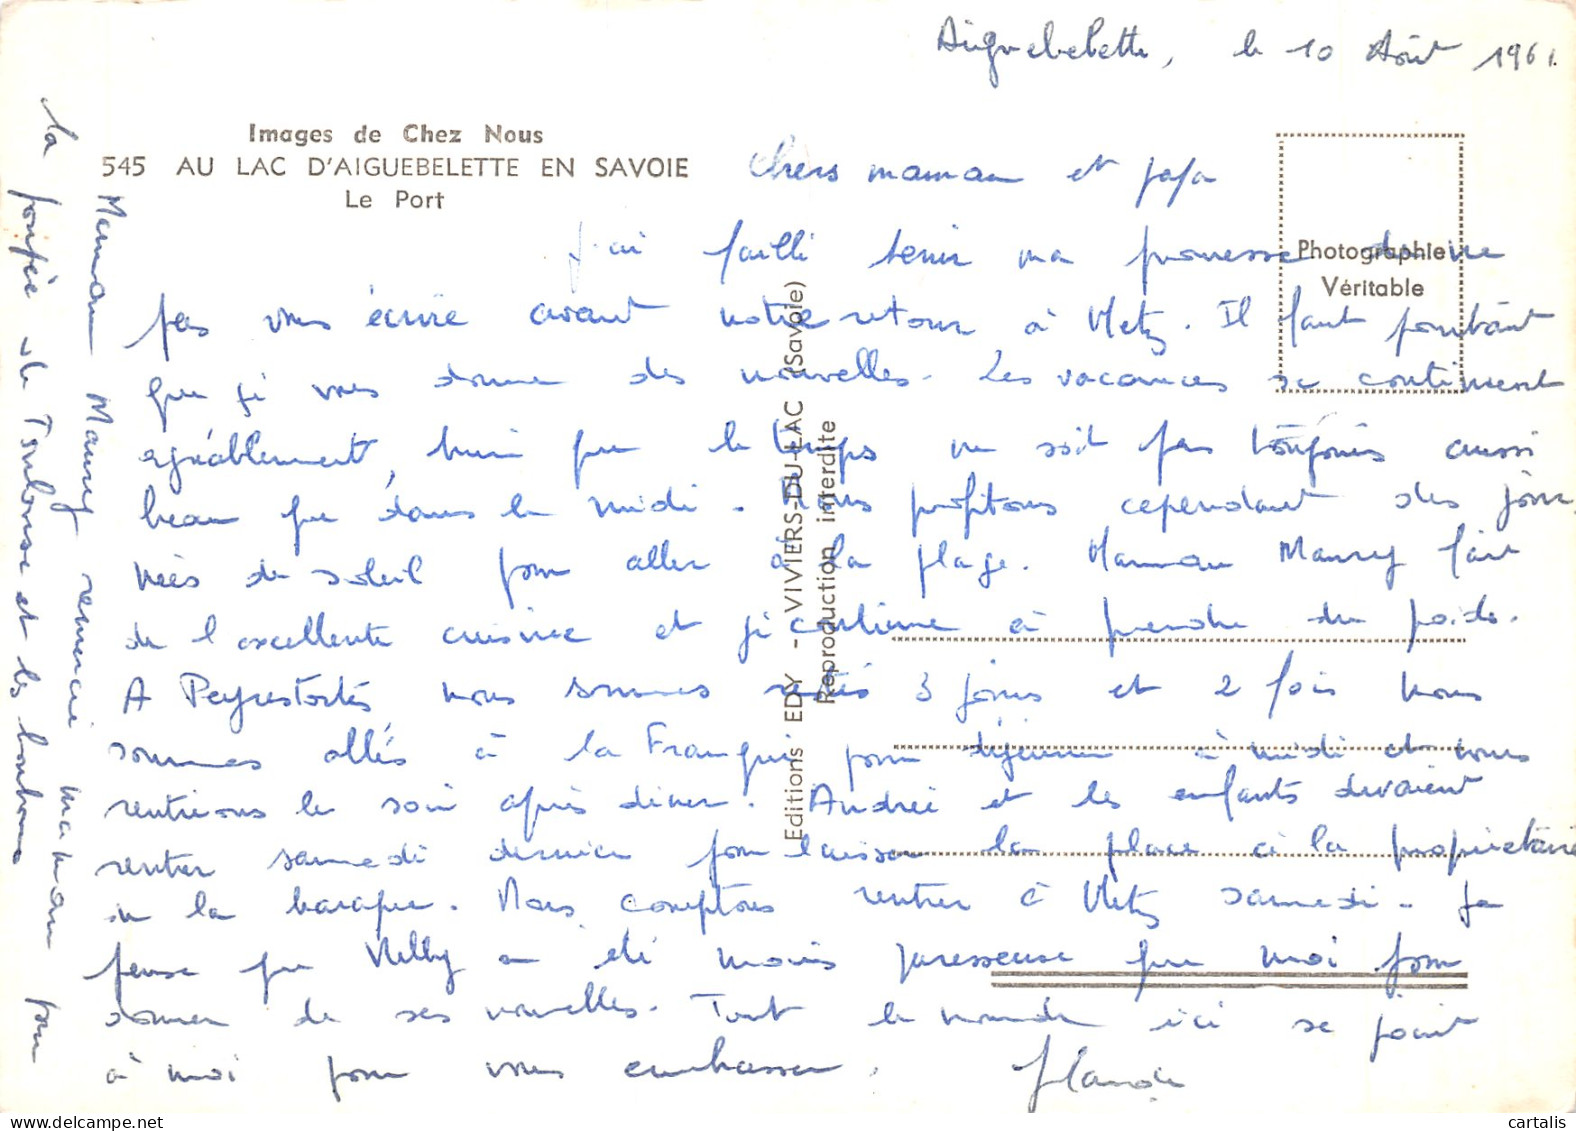 Aiguebelette, le 10 Août 1961.
Images de Chez Nous
545 AU LAC D'AIGUEBELETTE EN SAVOIE
Le Port
Photographie
Véritable
Editions EDY - VIVIERS-DU-LAC (Savoie)
Reproduction interdite
Chers maman et papa
J'ai failli tenir ma promesse de ne
pas vous écrire avant notre retour à Metz. Il faut pourtant
que je vous donne des nouvelles. Les vacances se continuent
agréablement, bien que le temps ne soit pas toujours aussi
beau que dans le midi. Nous profitons cependant des jour
nées de soleil pour aller à la plage. Maman Maury fait
de l'excellente cuisine et je continue à prendre du poids.
A Peyrestortes nous sommes restés 3 jours et 2 fois nous
sommes allés à la Franqui pour déjeuner à midi et nous
rentrions le soir après diner. Andrée et les enfants devaient
rentrer samedi dernier pour laisser la place à la propriétaire
de la baraque. Nous comptons rentrer à Metz samedi. Je
pense que Nelly a été moins paresseuse que moi pour
donner de ses nouvelles. Tout le monde ici se joint
à moi pour vous embrasser.
Maman Maury remercie maman pour
la poupée de Toulouse et les bonbons
cartalis